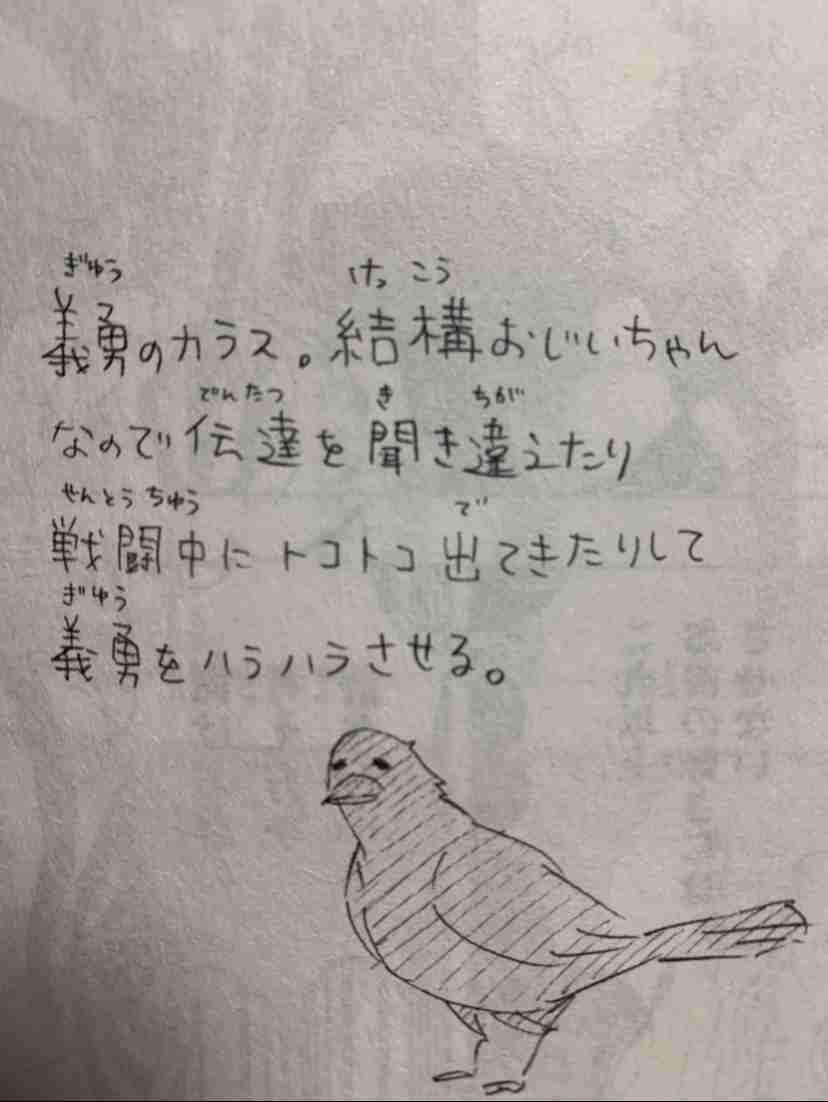 ぎゆう
けっこう
義勇のカラス。結構おじいちゃん
でんたつ
き
ちが
なので伝達を聞き違えたり
せんとうちゅう
で
戦闘中にトコトコ出てきたりして
ぎゆう
義勇をハラハラさせる。